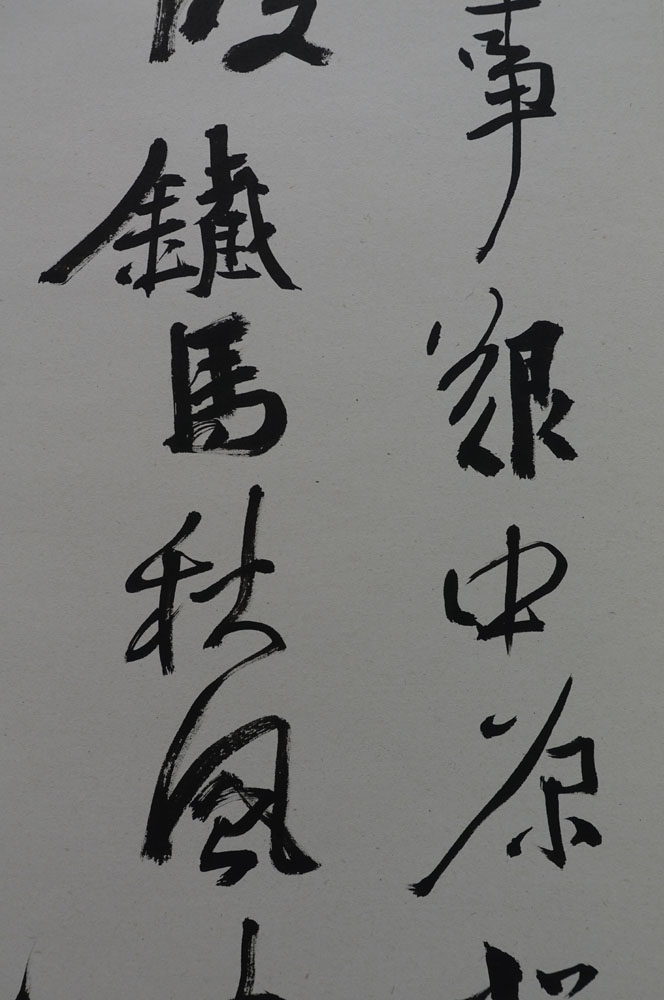 事艰中原
鐵馬秋風